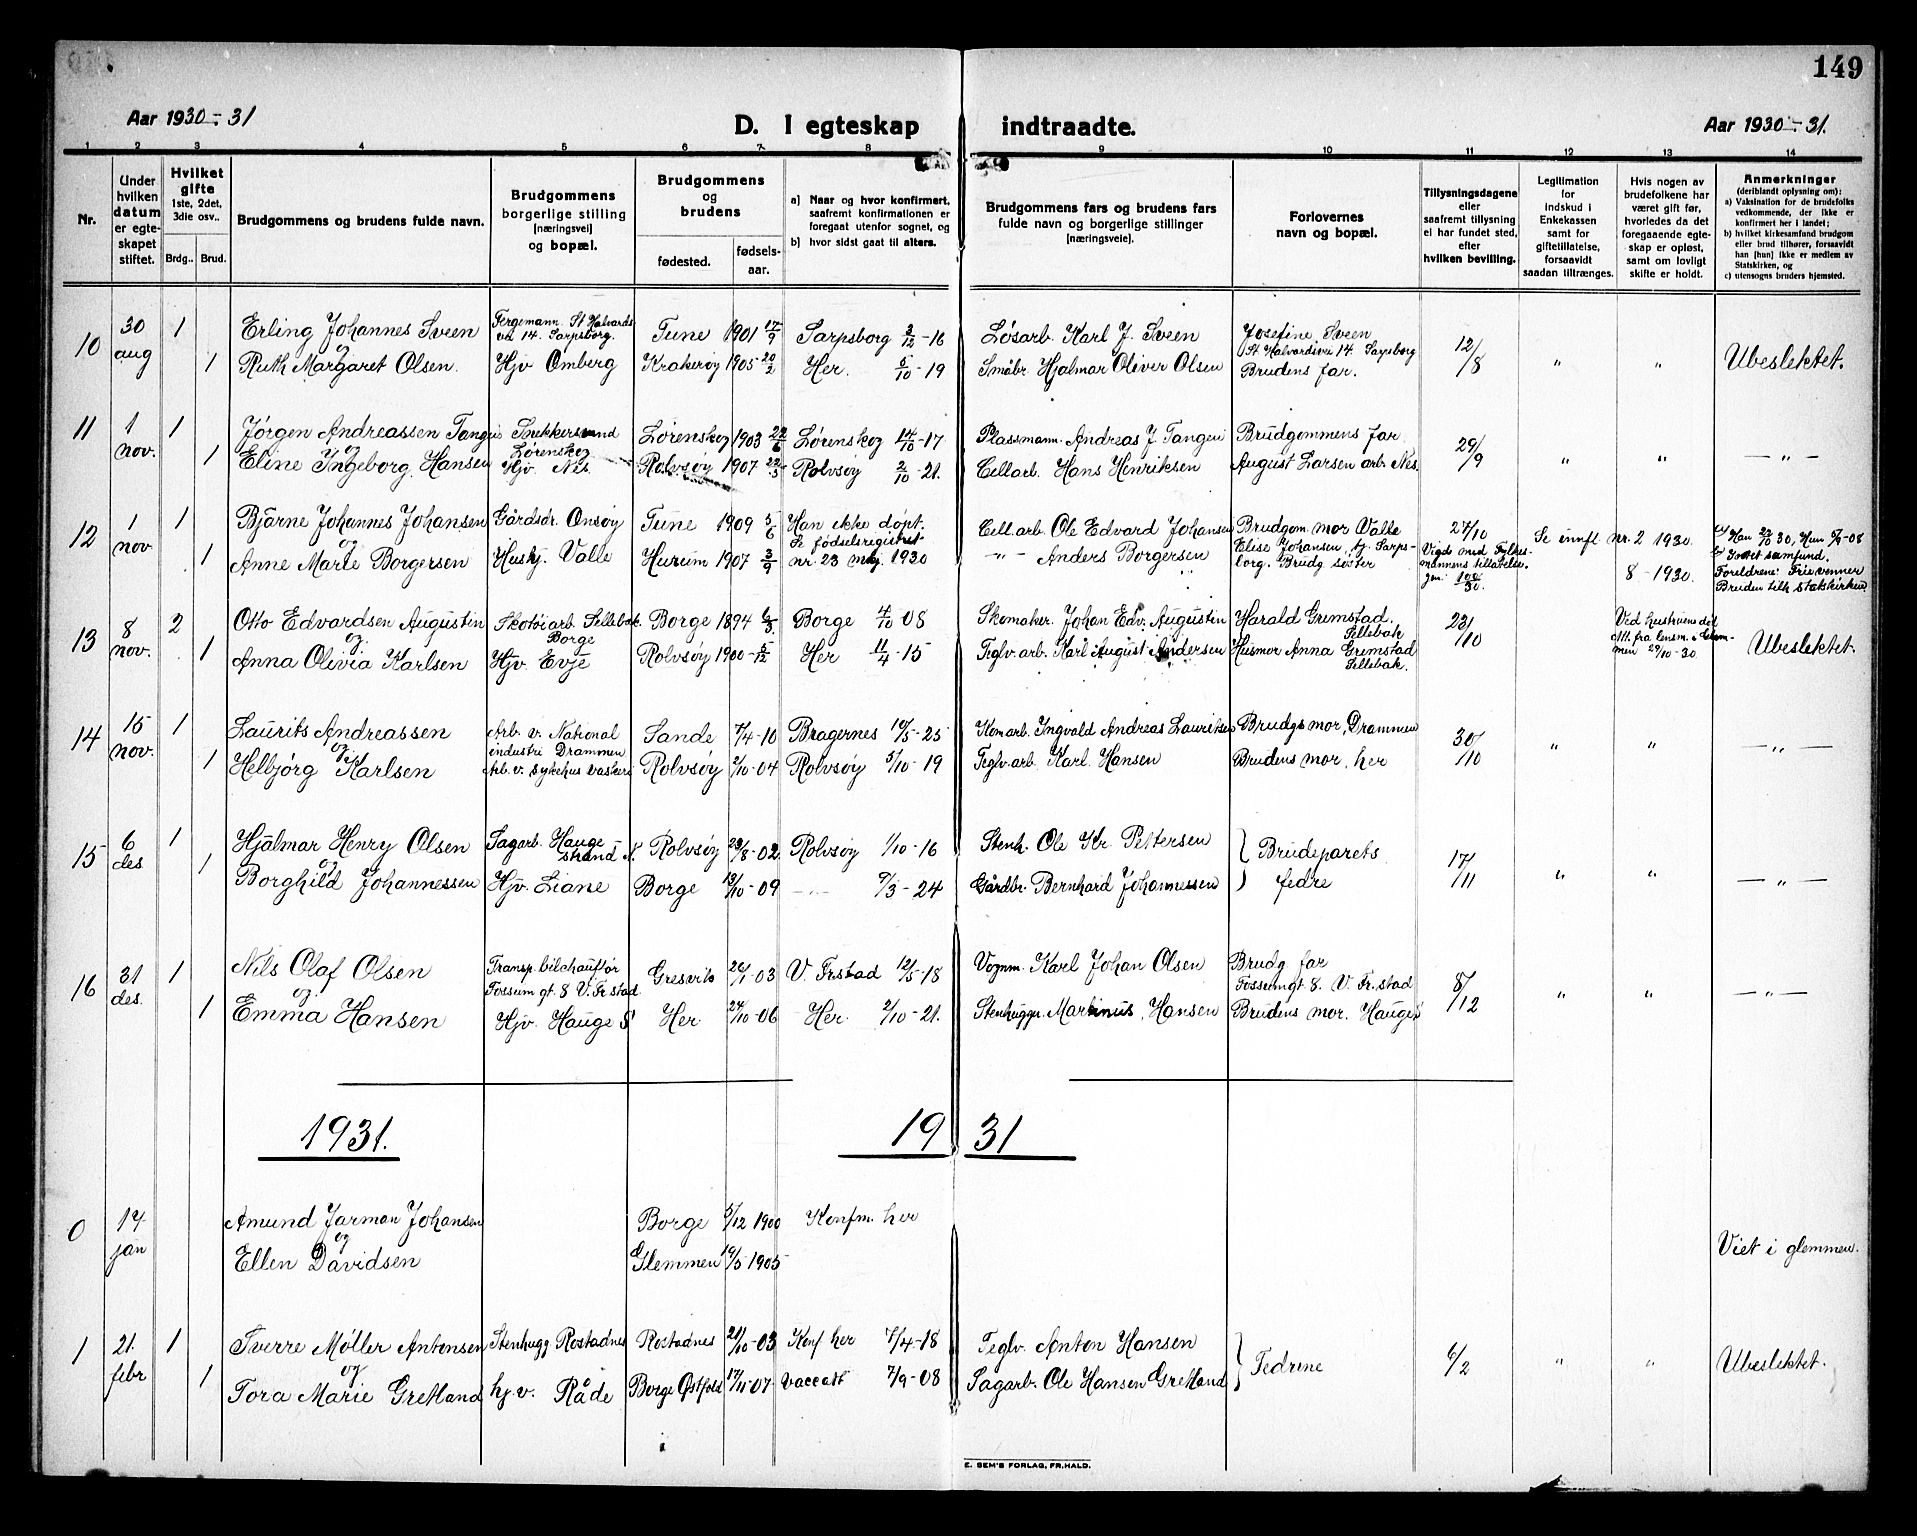 149
Aar 1930-31
D. I egteskap indtraadte.
Aar 1930-31.
1 2 3 4 5 6 7 8 9 10 11 12 13 14
Nr.
Under hvilken datum er egteskapet stiftet.
Hvilket gifte 1ste, 2det, 3die osv..
Brdg.. Brud.
Brudgommens og brudens fulde navn.
Brudgommens borgerlige stilling (næringsvei) og bopæl.
Brudgommens og brudens
fødested. fødselsaar.
a) Naar og hvor konfirmert, saafremt konfirmationen er foregaat utenfor sognet, og
b) hvor sidst gaat til alters.
Brudgommens fars og brudens fars fulde navn og borgerlige stillinger (næringsveie).
Forlovernes navn og bopæl.
Tillysningsdagene eller saafremt tillysning ei har fundet sted, efter hvilken bevilling.
Legitimation for indskud i Enkekassen samt for giftetillatelse, forsaavidt saadan tiltrænges.
Hvis nogen av brudefolkene har været gift før, hvorledes da det foregaaende egteskap er opløst, samt om lovligt skifte er holdt.
Anmerkninger (deriblandt oplysning om): a) Vaksination for de brudefolks vedkommende, der ikke er konfirmert her i landet; b) hvilket kirkesamfund brudgom eller brud tilhører, forsaavidt han [hun] ikke er medlem av Statskirken, og c) utensogns bruders hjemsted.
10 30 aug 1 Erling Johannes Sveen Fergemann. St Halvards vei 14. Sarpsborg. Tune 1901 17/9 Sarpsborg 2/10-16 Løsarb. Karl J. Sveen Josefine Sveen St Halvardsvei 14 Sarpsborg 12/8 " " Ubeslektet.
og
1 Ruth Margaret Olsen. Hjv Omberg Krakerøy 1905 20/2 Her. 5/10-19 Småbr. Hjalmar Oliver Olsen Brudens far.
11 1 nov. 1 Jørgen Andreassen Tangen Snekkersvend Lørenskog Lørenskog 1903 22/6 Lørenskog 14/10-17 Plassmann. Andreas J Tangen Brudgommens far 29/9 " " — " —
og
1 Eline Ingeborg Hansen Hjv. Nes. Rolvsøy 1907 22/5 Rolvsøy 2/10-21. Cellarb. Hans Henriksen August Larsen arb. Nes.
12 1 nov 1 Bjarne Johannes Johansen Gårdsør. Onsøy Tune 1909 5/6 Han ikke døpt. Se fødselsregistret nr. 23 1930 Cell. arb. Ole Edvard Johansen Brudgom. mor Valle Elise Johansen, Sarpsborg. Brudg søster 27/10 Vigde med Fylkesmannens tillatelse. Se innf. nr. 2 1930. 8 - 1930. Foreldrene: Frievenner Bruden tilh statskirken
og
1 Anne Marie Borgersen Hushj. Valle Hurum 1907 3/9 - " - Anders Borgersen
13 8 nov. 2 Otto Edvardsen Augustin Skotøiarb. Sellebak. Borge Borge 1894 6/3 Borge 4/10 08 Skomaker. Johan Edv. Augustin Harald Grimstad. Sellebak 23/10 Ved hustruens død Att. fra lensm. i Glemmen 29/10-30 Ubeslektet.
og
1 Anna Olivia Karlsen Hjv. Evje Rolvsøy 1900 5/12 Her 11/4-15 Teglv.arb. Karl August Andersen Husmor Anna Grimstad Sellebak.
14 15 nov. 1 Laurits Andreassen Arb. v. National industri Drammen Sande 7/4-10 Bragernes 10/5-25 Kom arb. Ingvald Andreas Lauritsen Brudgs mor, Drammen 30/10 " " — " —
og
1 Helbjørg Karlsen Arb. v. sykehus vaskeri Rolvsøy 2/10-04 Rolvsøy 5/10-19 Teglv.arb. Karl Hansen Brudens mor, her
15 6 des 1 Hjalmar Henry Olsen Sagarb. Haugestrand N. Rolvsøy 23/8-02 Rolvsøy 1/10-16 Stenh. Ole Kr. Pettersen } Brudeparets fedre 17/11 " " — " —
og
1 Borghild Johannessen Hjv. Liane Borge 13/10-09 — 9/3-24 Gårdbr. Bernhard Johannessen
16 31 des. 1 Nils Olaf Olsen Transp. bilchauffør Fossumgt. 8 V. Fr.stad Gresvik 26/1-03 V. Frstad 12/5-18 Vognm. Karl Johan Olsen Brudg far Fossumgt 8. V. Fr.stad 8/12 " " — " —
og
1 Emma Hansen Hjv. Hauge S. Her 24/10-06 Her. 2/10-21. Stenhugger Martinus Hansen Brudens mor. Hauge S
1931. 1931
0 14 jan Amund Jarman Johansen Borge 5/12 1900 Konfm. her Viet i glemmen.
og
Ellen Davidsen Glemmen 19/5 1905
1 21. febr 1 Sverre Møller Antonsen Stenhugg Rostadnes Rostadnes 21/10-03 Konf her 7/4-18 Teglv. Anton Hansen } Fedrene 6/2 " " Ubeslektet.
og
1 Tora Marie Gretland hj.v. Råde Borge Østfold 17/11-07 7/9-08 Sagarb. Ole Hansen Gretland
E. SEM'S FORLAG, FR.HALD.